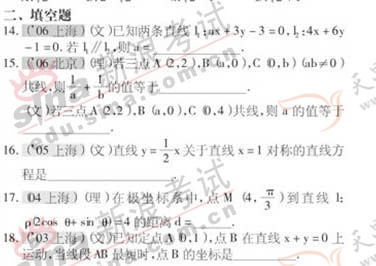 二、填空题
14.（'06上海）（文）已知两条直线 l₁:ax+3y-3=0,l₂:4x+6y
-1=0.若 l₁∥l₂,则 a=______.
15.（'06北京）（理）若三点 A(2,2),B(a,0),C(0,b)(ab≠0)
共线,则 1/a + 1/b 的值等于______.
（文）若三点 A(2,2),B(a,0),C(0,4)共线,则 a 的值等于
______.
16.（'05上海）（文）直线 y=1/2 x 关于直线 x=1 对称的直线方
程是______.
17.（04上海）（理）在极坐标系中,点 M (4, π/3)到直线 l:
ρ(2cos θ+sin θ)=4 的距离 d=______.
18.（'03上海）（文）已知定点 A(0,1),点 B 在直线 x+y=0 上
运动,当线段 AB 最短时,点 B 的坐标是______.
新浪考试
edu.sina.com.cn